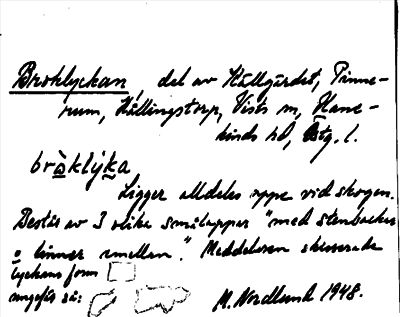 Broklyckan, del av Källgärdet, Pinne-
rum, Källingstorp, Vists sn, Hane-
kinds hd, Östg. l.
bråklýka
Ligger alldeles uppe vid skogen.
Består av 3 olika smålappar "med stenbackar
o linner emellan." Meddelaren skisserade
lyckans form
ungefär så:
M. Nordlund 1948.